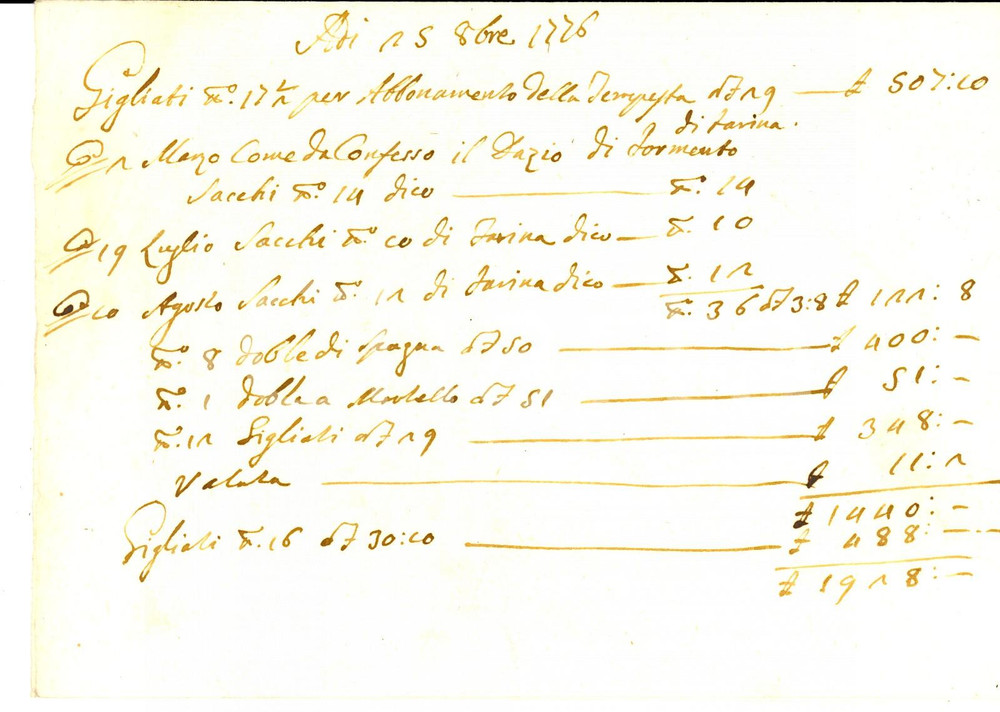 Adi 25 8bre 1776
Gigliati N.° 17 ½ per Abbonamento della Tempesta a £ 29 — £ 507:10
di farina.
2 Marzo Come da Confesso il Dazio di formento
Sacchi N.° 14 dico — N.° 14
19 Luglio Sacchi N.° 10 di farina dico — N. 10
10 Agosto Sacchi N.° 12 di farina dico — N. 12
N.° 36 a £ 3:8 £ 122: 8
N.° 8 doble di Spagna a £ 50 — £ 400: –
N.° 1 dobla a Martello a £ 51 — £ 51: –
N.° 12 Gigliati a £ 29 — £ 348: –
Valuta — £ 11: 2
£ 1440: –
Gigliati N.° 16 a £ 30:10 — £ 488: –
£ 1928: –